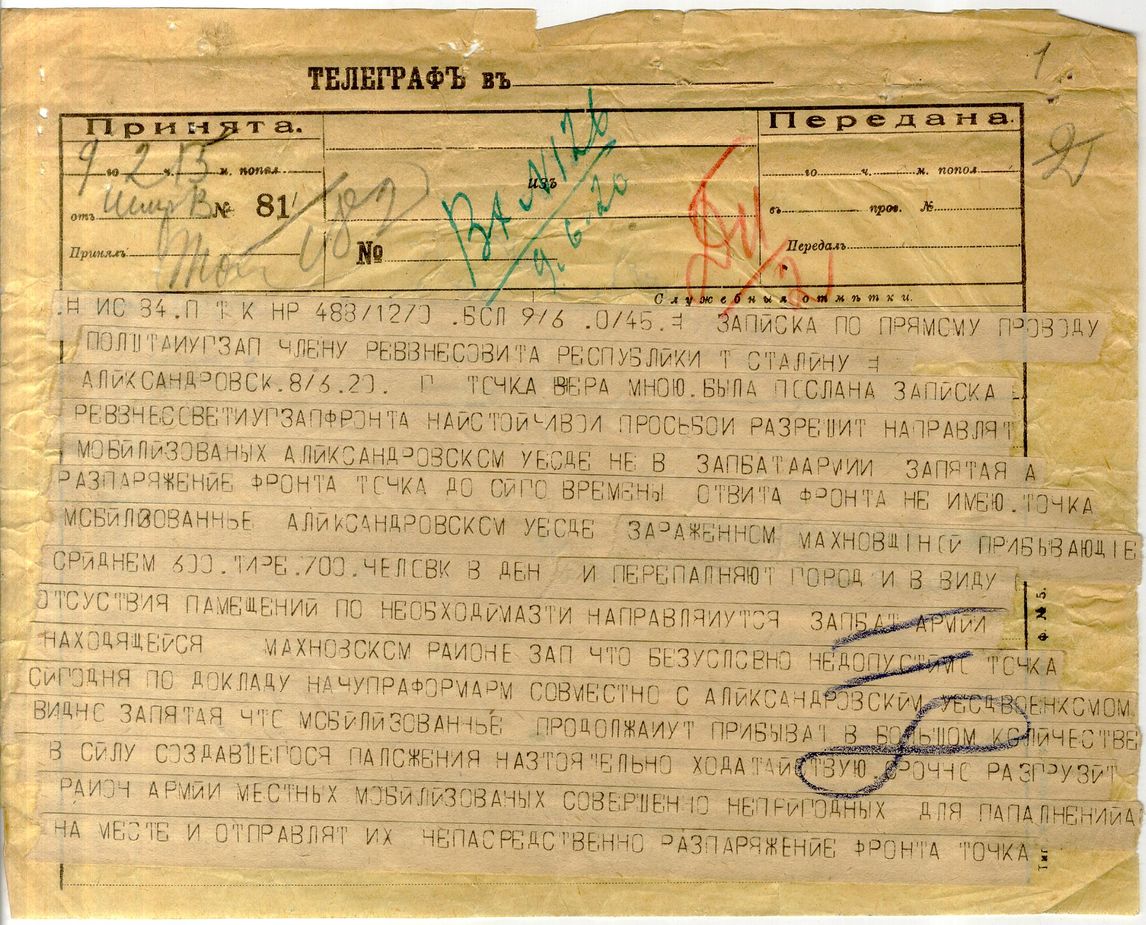 1
ТЕЛЕГРАФЪ въ
Принята.
Передана.
2
9 го 2 ч. 15 м. попол.
изъ
го ч. м. попол.
отъ № 81
Вх N 126
9. 6. 20
въ пров. №
Принялъ
№
Передалъ
Служебныя отмѣтки.
.Н ИС 84.П Т К НР 483/12/Э .БСЛ 9/6 .0/45.= ЗАПЙСКА ПО ПРЯМСМУ ПРОВОДУ
ПОЛШТАИУГЗАП ЧЛЕНУ РЕВВЗНЕСОВИТА РЕСПУБЛЙКИ Т СТАЛЙНУ =
АЛЙКСАНДРОВСК.8/6.20. П ТСЧКА ВЕРА МНОЮ.БЫЛА ПССЛАНА ЗАПЙСКА
РЕВВЗНЕССВЕТИУГЗАПФРОНТА НАЙСТОЙЧИВОЙ ПРОСЬБОЙ РАЗРЕШИТ НАПРАВЛЯТ
МОБИЛЙЗОВАНЫХ АЛЙКСАНДРОВСКСМ УЕСДЕ НЕ В ЗАПБАТААРМИИ ЗАПЯТАЯ А
РАЗПАРЯЖЕНИЕ ФРОНТА ТСЧКА ДО СЙГО ВРЕМЕНЫ ОТВИТА ФРОНТА НЕ ИМЕЮ.ТОЧКА
МСБИЛЙЗОВАННЬЕ АЛЙКСАНДРОВСКСМ УЕСДЕ ЗАРАЖЕННОМ МАХНОВЩІНСЙ ПРИБЫВАЮЩІЕ
СРЙДНЕМ 600.ТИРЕ.700.ЧЕЛСВК В ДЕН И ПЕРЕПАЛНЯЮТ ГОРОД И В ВИДУ
ОТСУСТВИЯ ПАМЕЩЕНИЙ ПО НЕОБХОДЙМАЗТИ НАПРАВЛЯИУТСЯ ЗАПБАТ АРМЙИ
НАХОДЯЩЕЙСЯ МАХНОВСКСМ РАЙОНЕ ЗАП ЧТО БЕЗУСЛСВНО НЕДОПУСТЙМС ТСЧКА
СЙГОДНЯ ПО ДОКЛАДУ НАЧУПРАФОРМАРМ СОВМЕСТНО С АЛЙКСАНДРОВСКЙМ УЕСДВОЕНКСМОМ
ВИДНС ЗАПЯТАЯ ЧТС МСБИЛЙЗОВАННЬЕ ПРОДОЛЖАИУТ ПРИБЫВАТ В БОЛЬШОМ КСЛИЧЕСТВЕ
В СЙЛУ СОЗДАВШЕГОСЯ ПАЛСЖЕНИЯ НАЗТОЯТЕЛЬНО ХОДАТАЙСТВУЮ СРОЧНС РАЗГРУЗИТ
РАЙСЧ АРМЙИ МЕСТНЫХ МОБИЛЙЗОВАНЫХ СОВЕРШЕННО НЕПРЙГОДНЫХ ДЛЯ ПАПАЛНЕНЙЙА
НА МЕСТЕ И ОТПРАВЛЯТ ИХ НЕПАСРЕДСТВЕННО РАЗПАРЯЖЕНИЕ ФРОНТА ТОЧКА
Ф № 5.